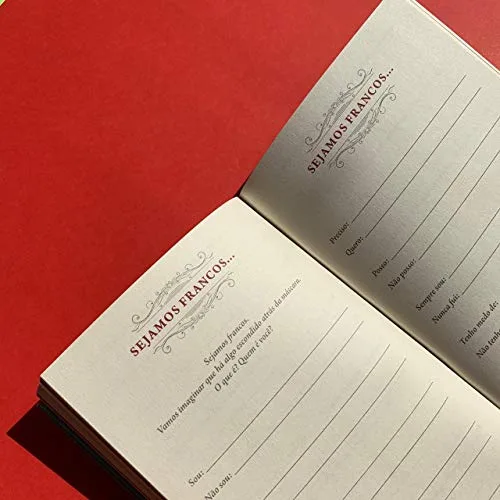 SEJAMOS FRANCOS...
Sejamos francos.
Vamos imaginar que há algo escondido atrás da máscara.
O que é? Quem é você?
Sou:
Não sou:
SEJAMOS FRANCOS...
Preciso:
Quero:
Posso:
Não posso:
Sempre sou:
Nunca fui:
Tenho medo de
Não